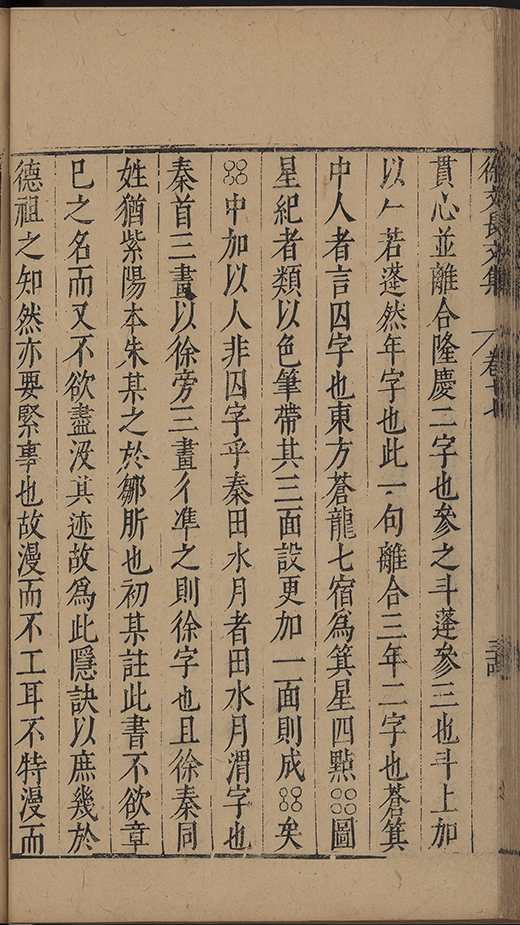 徐文長文集 卷十七
貫心並離合隆慶二字也參之斗蓬參三也斗上加
以𠂉若蓬然年字也此一句離合三年二字也蒼箕
中人者言囚字也東方蒼龍七宿爲箕星四㸃○○○○圖
星紀者類以色筆帶其三面設更加一面則成○○○○矣
○○○○中加以人非囚字乎秦田水月者田水月渭字也
秦首三畫以徐旁三畫彳凖之則徐字也且徐秦同
姓猶紫陽本朱某之於鄒訢也初某註此書不欲章
巳之名而又不欲盡沒其迹故爲此隱訣以庶幾於
德祖之知然亦要緊事也故漫而不工耳不特漫而